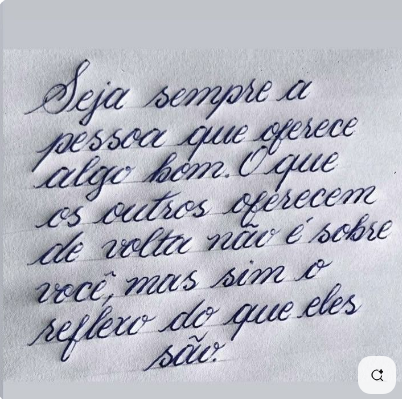 Seja sempre a
pessoa que oferece
algo bom. O que
os outros oferecem
de volta não é sobre
você, mas sim o
reflexo do que eles
são.